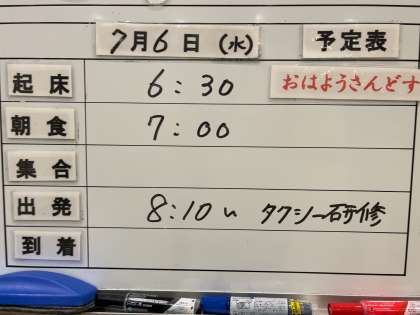 7月6日(水) 予定表
起床 6:30 おはようさんどす
朝食 7:00
集合
出発 8:10〜 タクシー研修
到着